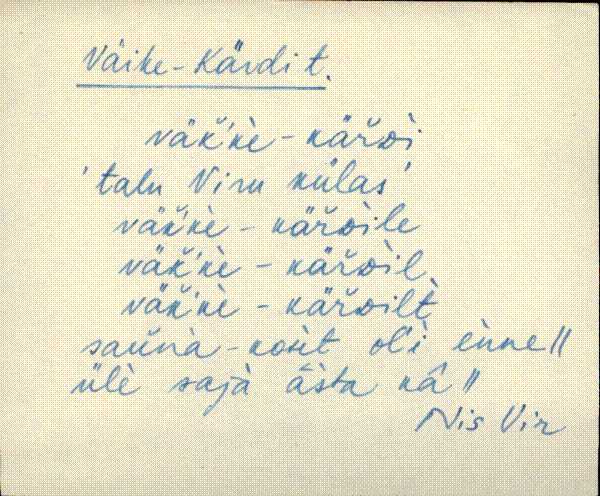 Väike-Kärdi t.
väk̆'kè-kär̆Di
'talu Viru külas'
väk̆'kè-kär̆Dìle
väk̆'kè-kär̆Dìl
väk̆'kè-kär̆Dilt
saŭnà-kot̀ ol'ì ènne //
ülè sajà āsta kâ //
Nis Vir